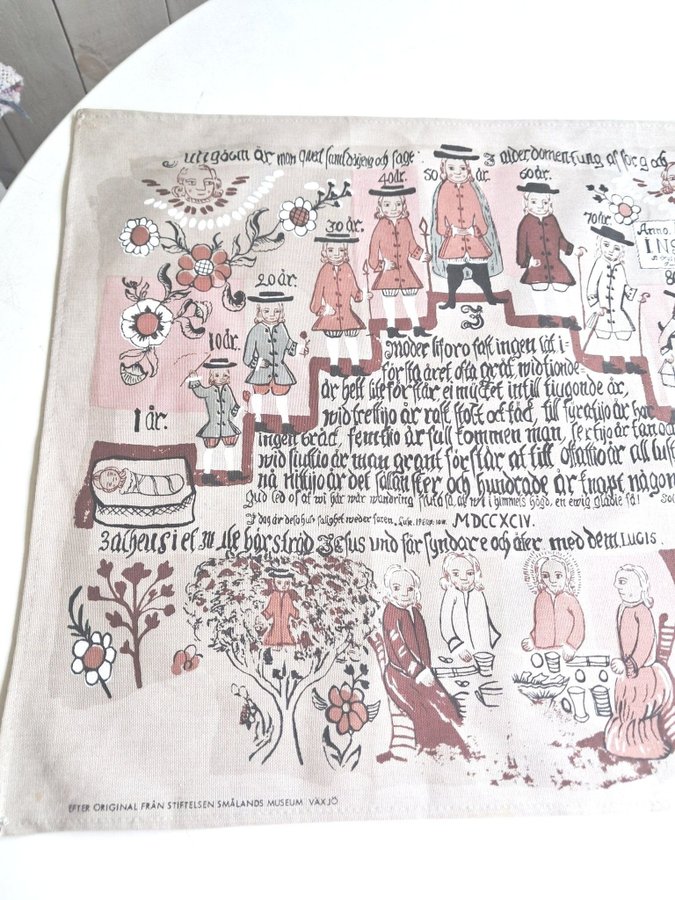 är man qwed och sage: I alderdomen tung af sorg och
40 år. 50 år. 60 år.
30 år. 70 år.
Anno.
INS
20 år. 80
10 år.
3
Moder lifvro fast ingen låt i
första året ofta gråt wid tionde
är helt lite förstår ei mycket intill tiugonde år,
1 år.
wid trettijo år rask stolt och till fyratijo år har
ingen bråd, femtio år full kommen man, sextijo år
wid siuttio år man grant förstår at till ottattio år all lust
nå nittijo år det sällan sker och hundrade år knapt någon
Gud led os at wi här wår wandring sluta så, at wi i himmels högd, en ewig glädie få!
I dag är desso hus salighet weder faren. Luk. MDCCXCIV.
Zacheus i et träd Jesus und får syndare och äter med dem. LUGIS.
EFTER ORIGINAL FRÅN STIFTELSEN SMÅLANDS MUSEUM VÄXJÖ